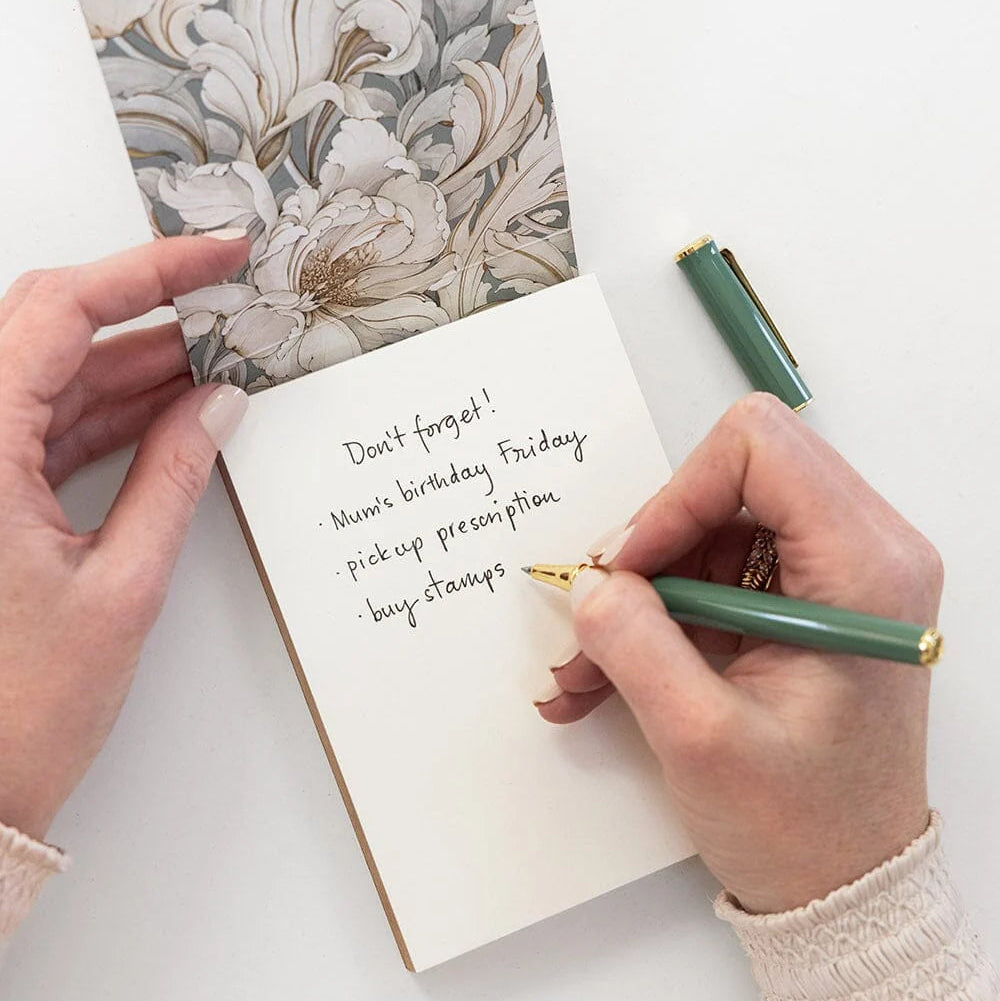 Don't forget!
· Mum's birthday Friday
· pick up prescription
· buy stamps